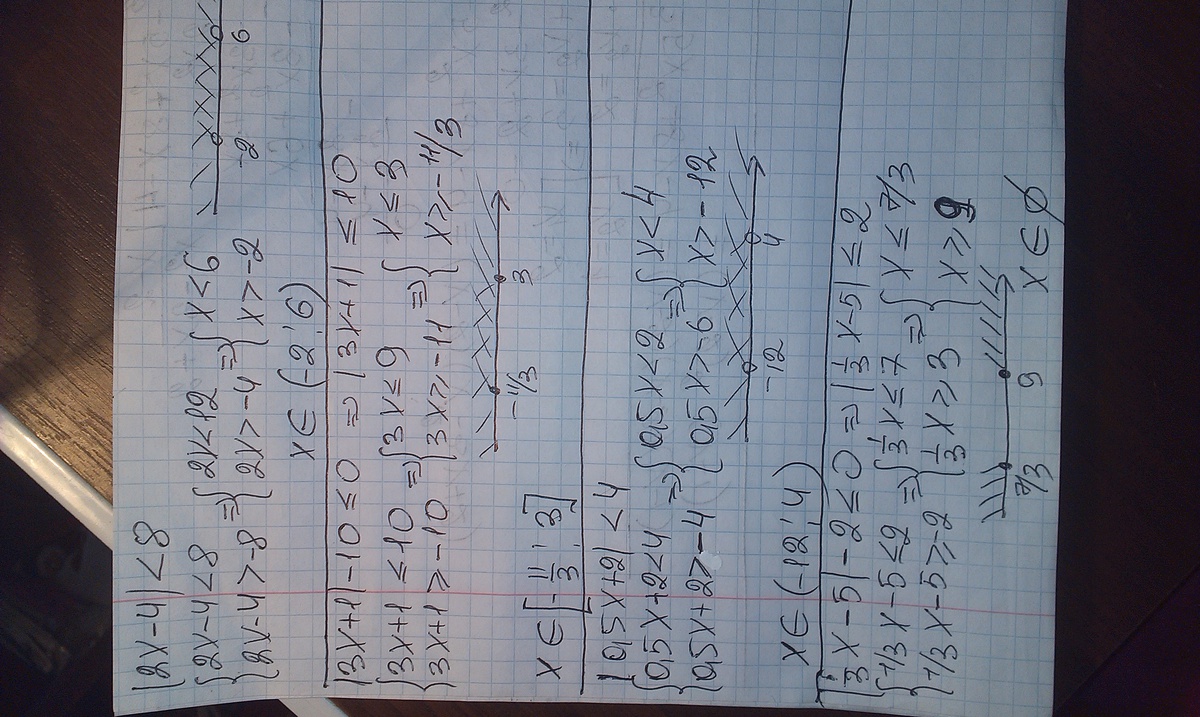 |2x-4|<8
{2x-4<8 => {2x<12 => {x<6
{2x-4>-8 {2x>-4 {x>-2
-2 6
x∈(-2;6)
|3x+1|-10≤0 => |3x+1|≤10
{3x+1≤10 => {3x≤9 => {x≤3
{3x+1≥-10 {3x≥-11 {x≥-11/3
-11/3 3
x∈[-11/3; 3]
|0,5x+2|<4
{0,5x+2<4 => {0,5x<2 => {x<4
{0,5x+2>-4 {0,5x>-6 {x>-12
-12 4
x∈(-12;4)
|1/3x-5|-2≤0 => |1/3x-5|≤2
{1/3x-5≤2 => {1/3x≤7 => {x≤7/3
{1/3x-5≥-2 {1/3x≥3 {x≥9
7/3 9
x∈∅